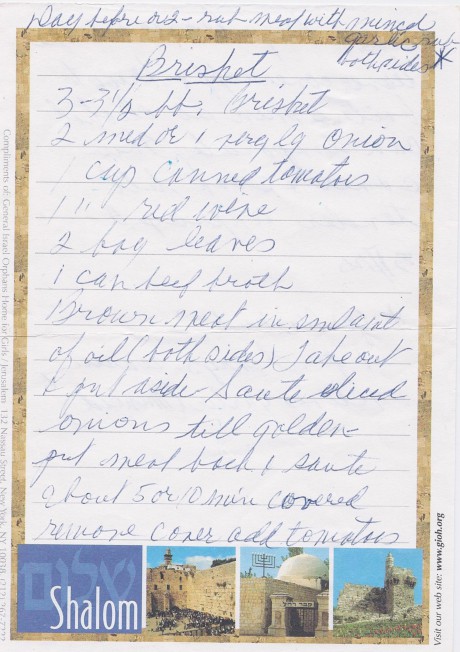 Day before or 2 - rub meat with minced
garlic, rub
both sides *
Brisket
3-3 1/2 lb. Brisket
2 med or 1 very lg onion
1 cup canned tomatoes
1 " red wine
2 bay leaves
1 can beef broth
Brown meat in sm amt
of oil (both sides) Take out
& put aside - Saute sliced
onions till golden -
put meat back & saute
about 5 or 10 min covered
remove cover add tomatoes
שלום
Shalom
Compliments of: General Israel Orphans Home for Girls / Jerusalem 132 Nassau Street, New York, NY 10038
Visit our web site: www.gioh.org